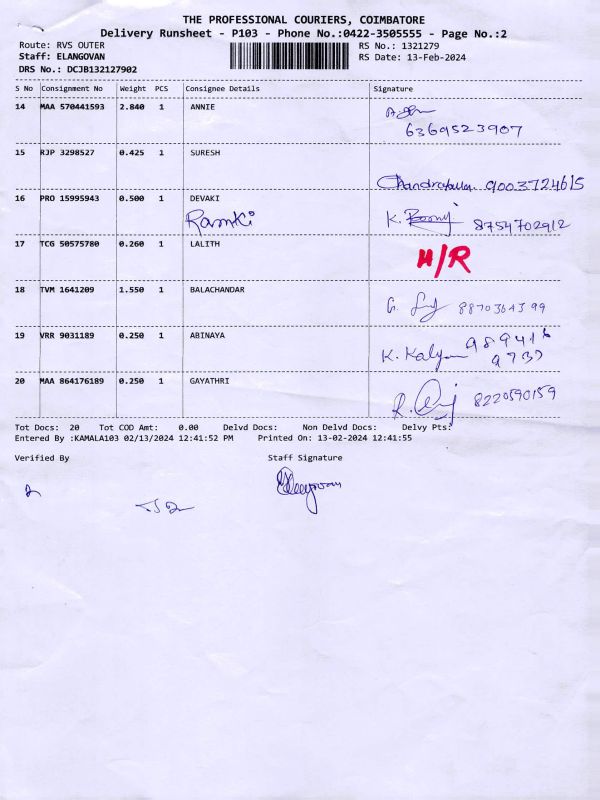 THE PROFESSIONAL COURIERS, COIMBATORE
Delivery Runsheet - P103 - Phone No.:0422-3505555 - Page No.:2
Route: RVS OUTER RS No.: 1321279
Staff: ELANGOVAN RS Date: 13-Feb-2024
DRS No.: DCJB132127902
S No Consignment No Weight PCS Consignee Details Signature
14 MAA 570441593 2.840 1 ANNIE
6369523907
15 RJP 3298527 0.425 1 SURESH
9003724615
16 PRO 15995943 0.500 1 DEVAKI
Ramki K. 8754702912
17 TCG 50575780 0.260 1 LALITH H/R
18 TVM 1641209 1.550 1 BALACHANDAR
G. 8870364399
19 VRR 9031189 0.250 1 ABINAYA 989416
K. Kalyan 9737
20 MAA 864176189 0.250 1 GAYATHRI
R. 8220590159
Tot Docs: 20 Tot COD Amt: 0.00 Delvd Docs: Non Delvd Docs: Delvy Pts:
Entered By :KAMALA103 02/13/2024 12:41:52 PM Printed On: 13-02-2024 12:41:55
Verified By Staff Signature